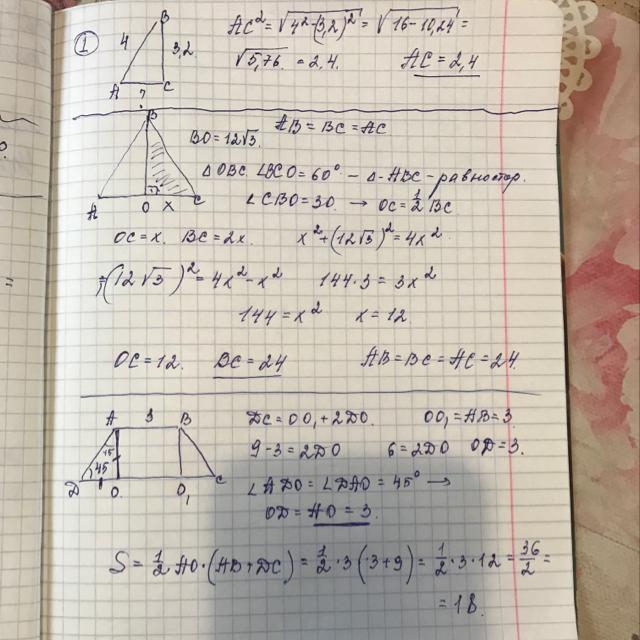 1
B
4
3,2
A
C
?
AC² = √4² - (3,2)² = √16 - 10,24 =
√5,76 = 2,4. AC = 2,4
B
A
O
x
C
BO = 12√3. AB = BC = AC
△OBC ∠BCO = 60° – △-ABC - равностор.
∠CBO = 30 → OC = 1/2 BC
OC = x. BC = 2x. x² + (12√3)² = 4x²
(12√3)² = 4x² - x² 144·3 = 3x²
144 = x² x = 12.
OC = 12. BC = 24 AB = BC = AC = 24.
A
3
B
45
45
D
O
O₁
C
DC = OO₁ + 2DO. OO₁ = AB = 3.
9 - 3 = 2DO 6 = 2DO OD = 3.
∠ADO = ∠DAO = 45° →
OD = AO = 3.
S = 1/2 AO·(AB + DC) = 1/2 · 3 (3 + 9) = 1/2 · 3 · 12 = 36/2 =
= 18.